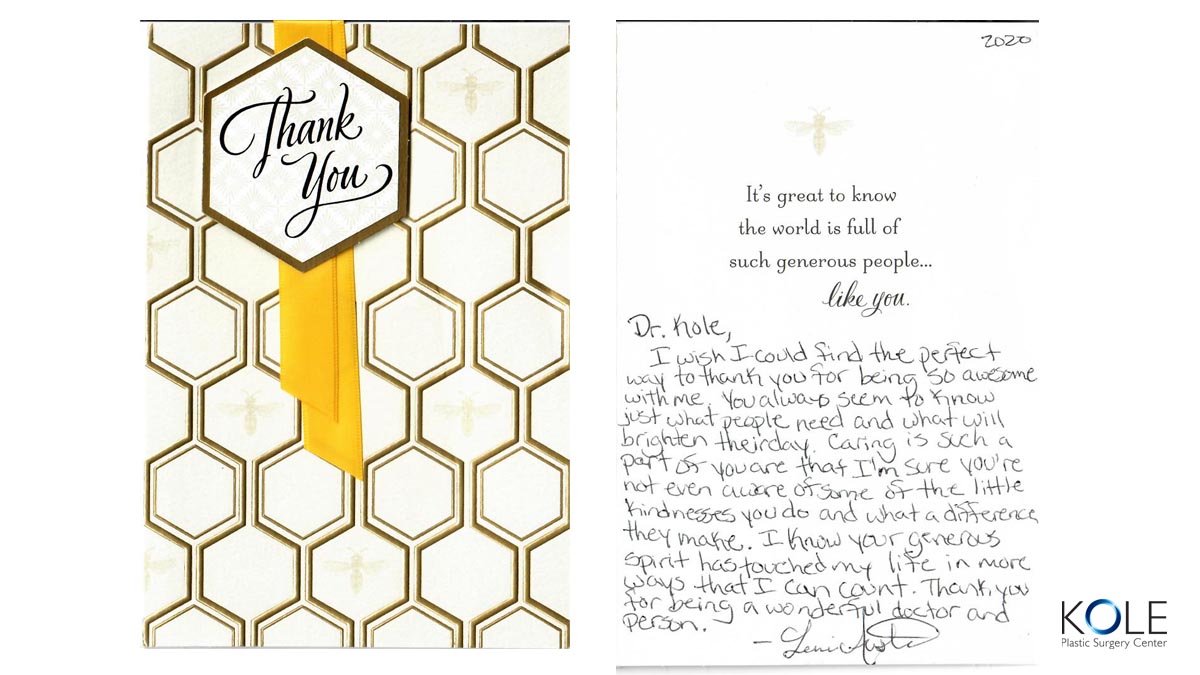 Thank
You
2020
It's great to know
the world is full of
such generous people...
like you.
Dr. Kole,
I wish I could find the perfect
way to thank you for being so awesome
with me. You always seem to know
just what people need and what will
brighten their day. Caring is such a
part of you are that I'm sure you're
not even aware of some of the little
kindnesses you do and what a difference
they make. I know your generous
spirit has touched my life in more
ways that I can count. Thank you
for being a wonderful doctor and
person.
KOLE
Plastic Surgery Center